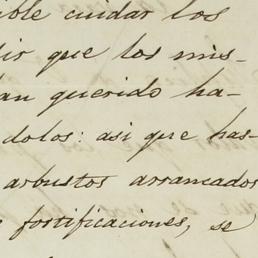 ible cuidar los
dir que los mis-
han querido ha-
dolos: asi que has-
arbustos arrancados
fortificaciones, se